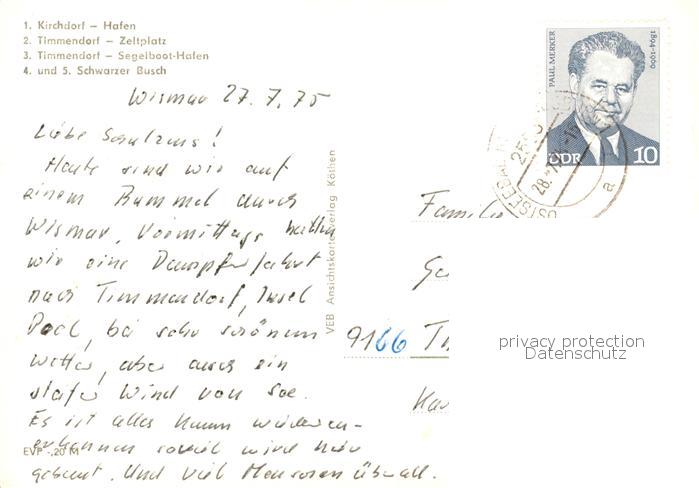 1. Kirchdorf – Hafen
2. Timmendorf – Zeltplatz
3. Timmendorf – Segelboot-Hafen
4. und 5. Schwarzer Busch
PAUL MERKER
1894-1969
DDR
10
28.7.
a
Wismar 27.7.75
Liebe Schulzens!
Heute sind wir auf
einem Bummel durch
Wismar, Vormittags hatten
wir eine Dampferfahrt
nach Timmendorf, Insel
Poel, bei sehr schönem
Wetter, aber auch ein
steifer Wind von See.
Es ist alles kaum wieder-
erkennen soviel wird hier
gebaut. Und viel Menschen überall.
VEB Ansichtskartenverlag Köthen
EVP -,20 M
Familie
9166
privacy protection
Datenschutz